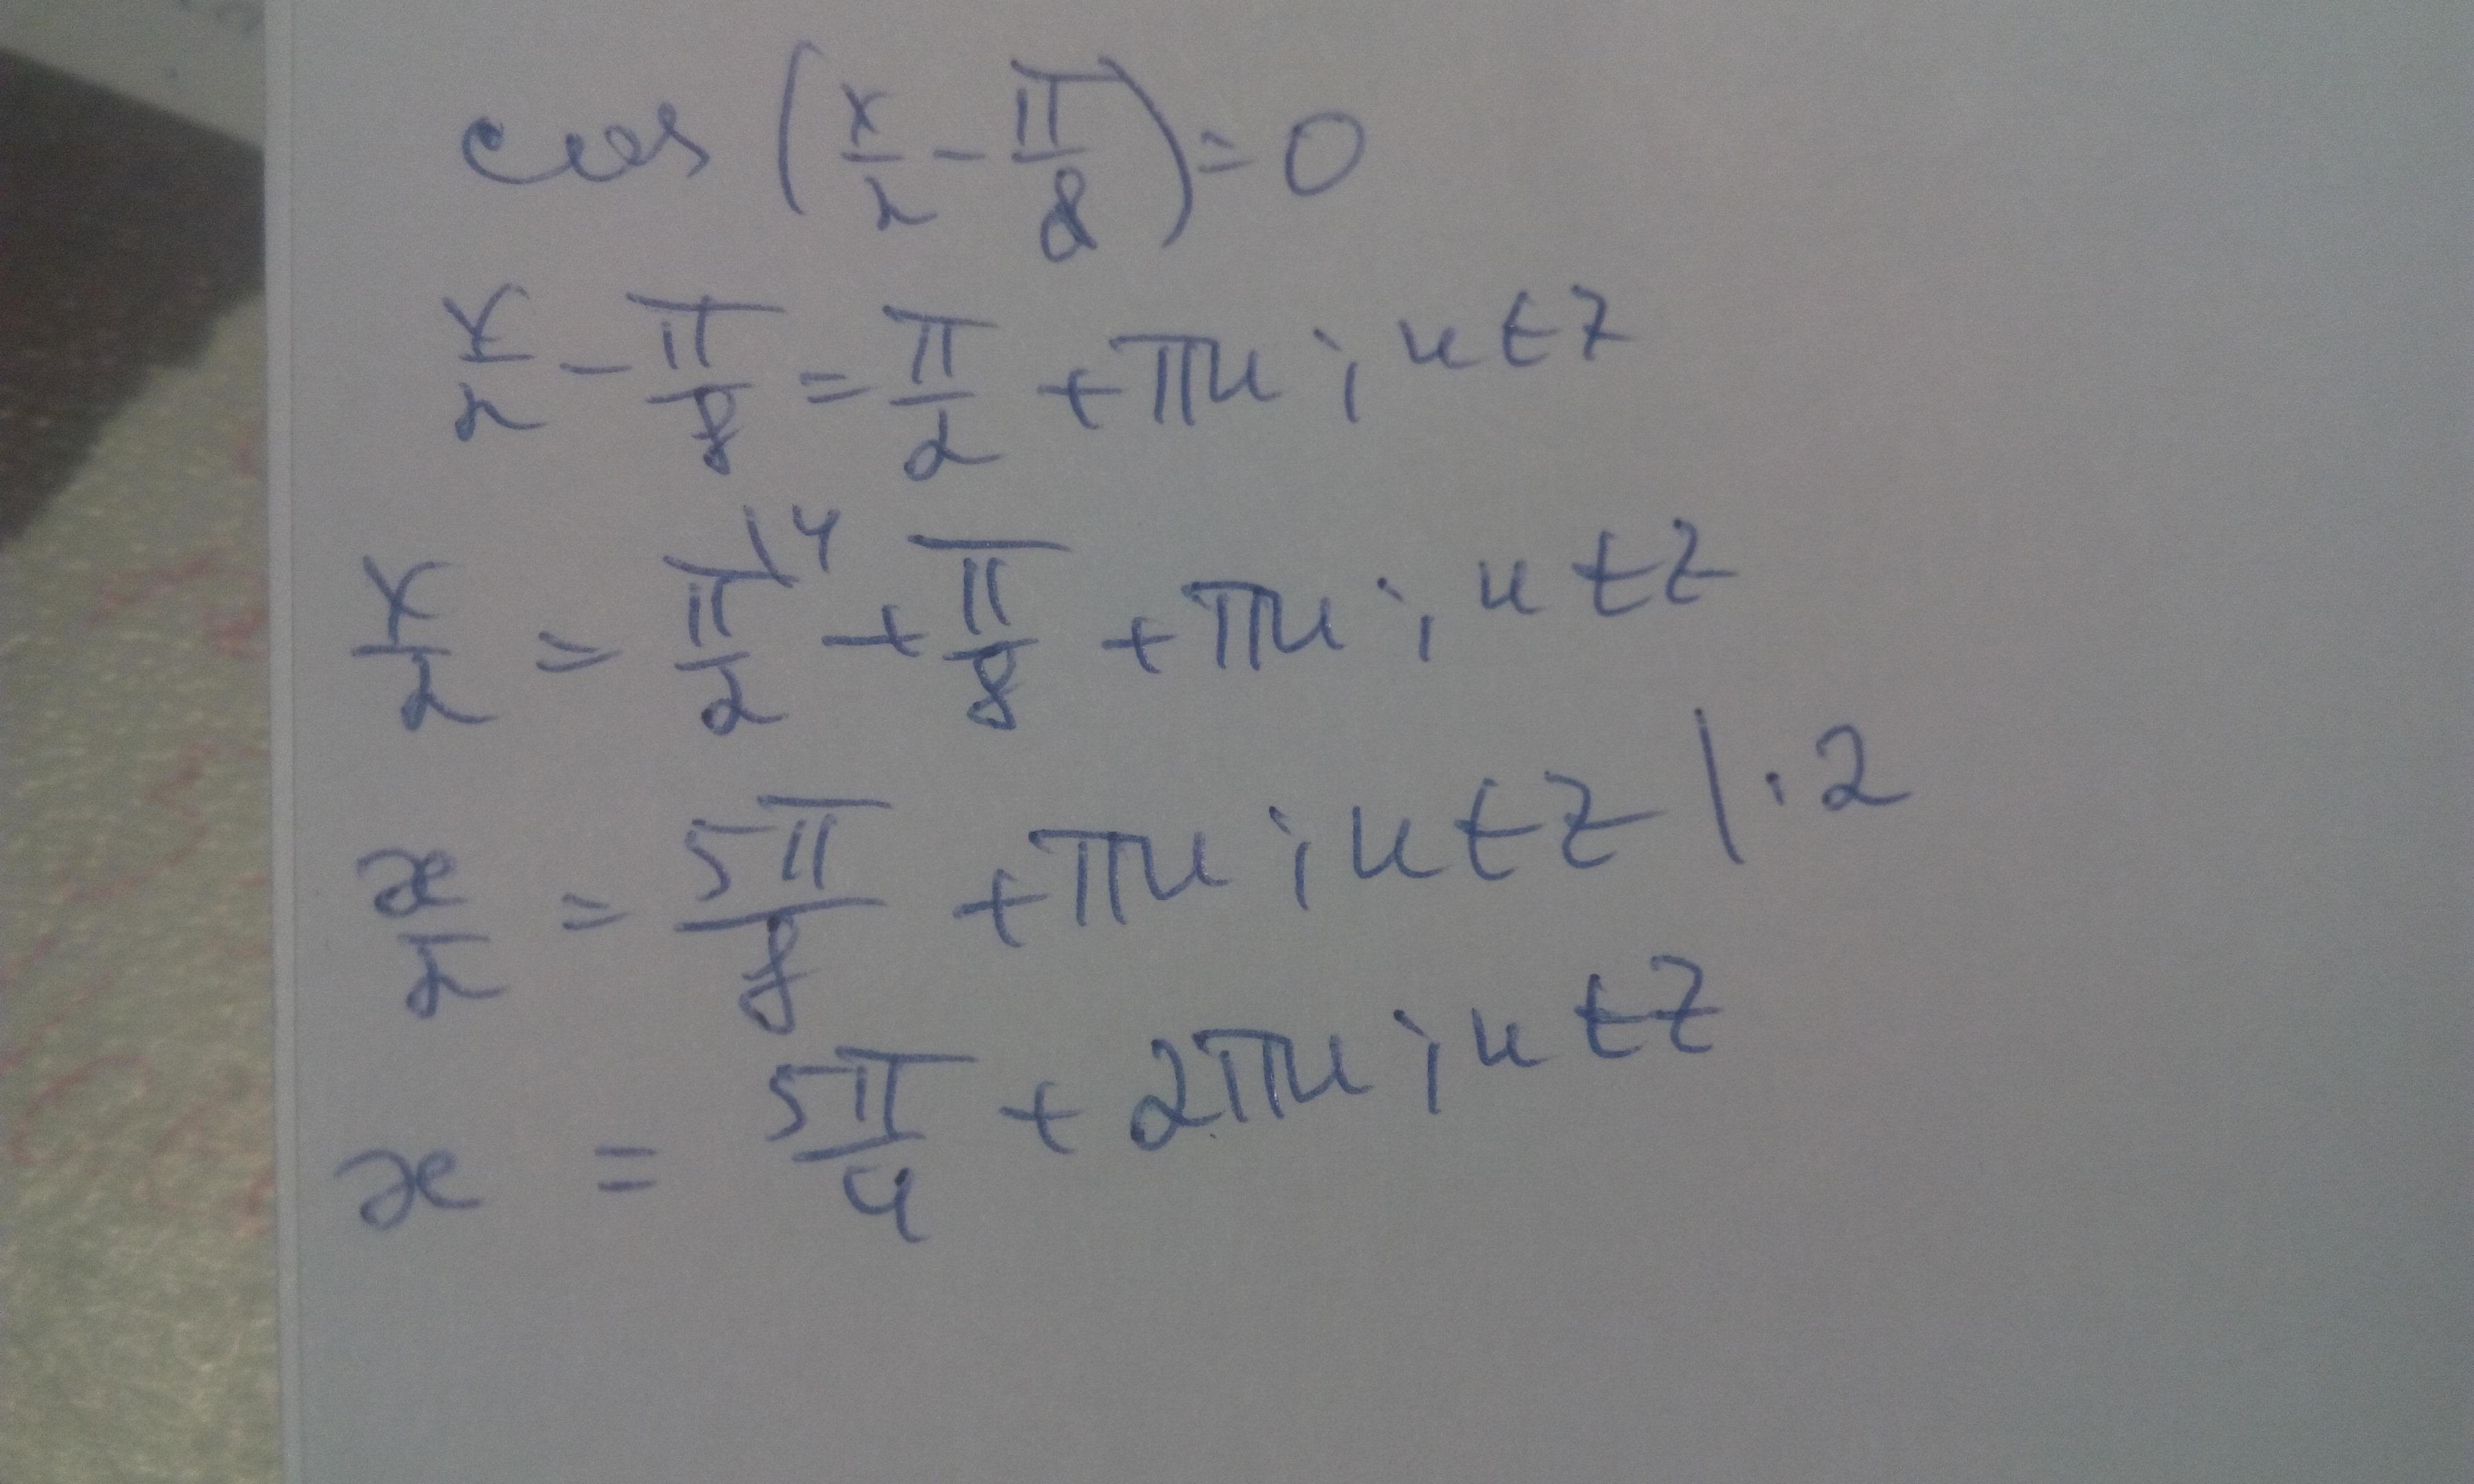 cos (x/2 - π/8) = 0
x/2 - π/8 = π/2 + πn; n∈Z
x/2 = π/2 \4 + π/8 + πn; n∈Z
x/2 = 5π/8 + πn; n∈Z | ·2
x = 5π/4 + 2πn; n∈Z